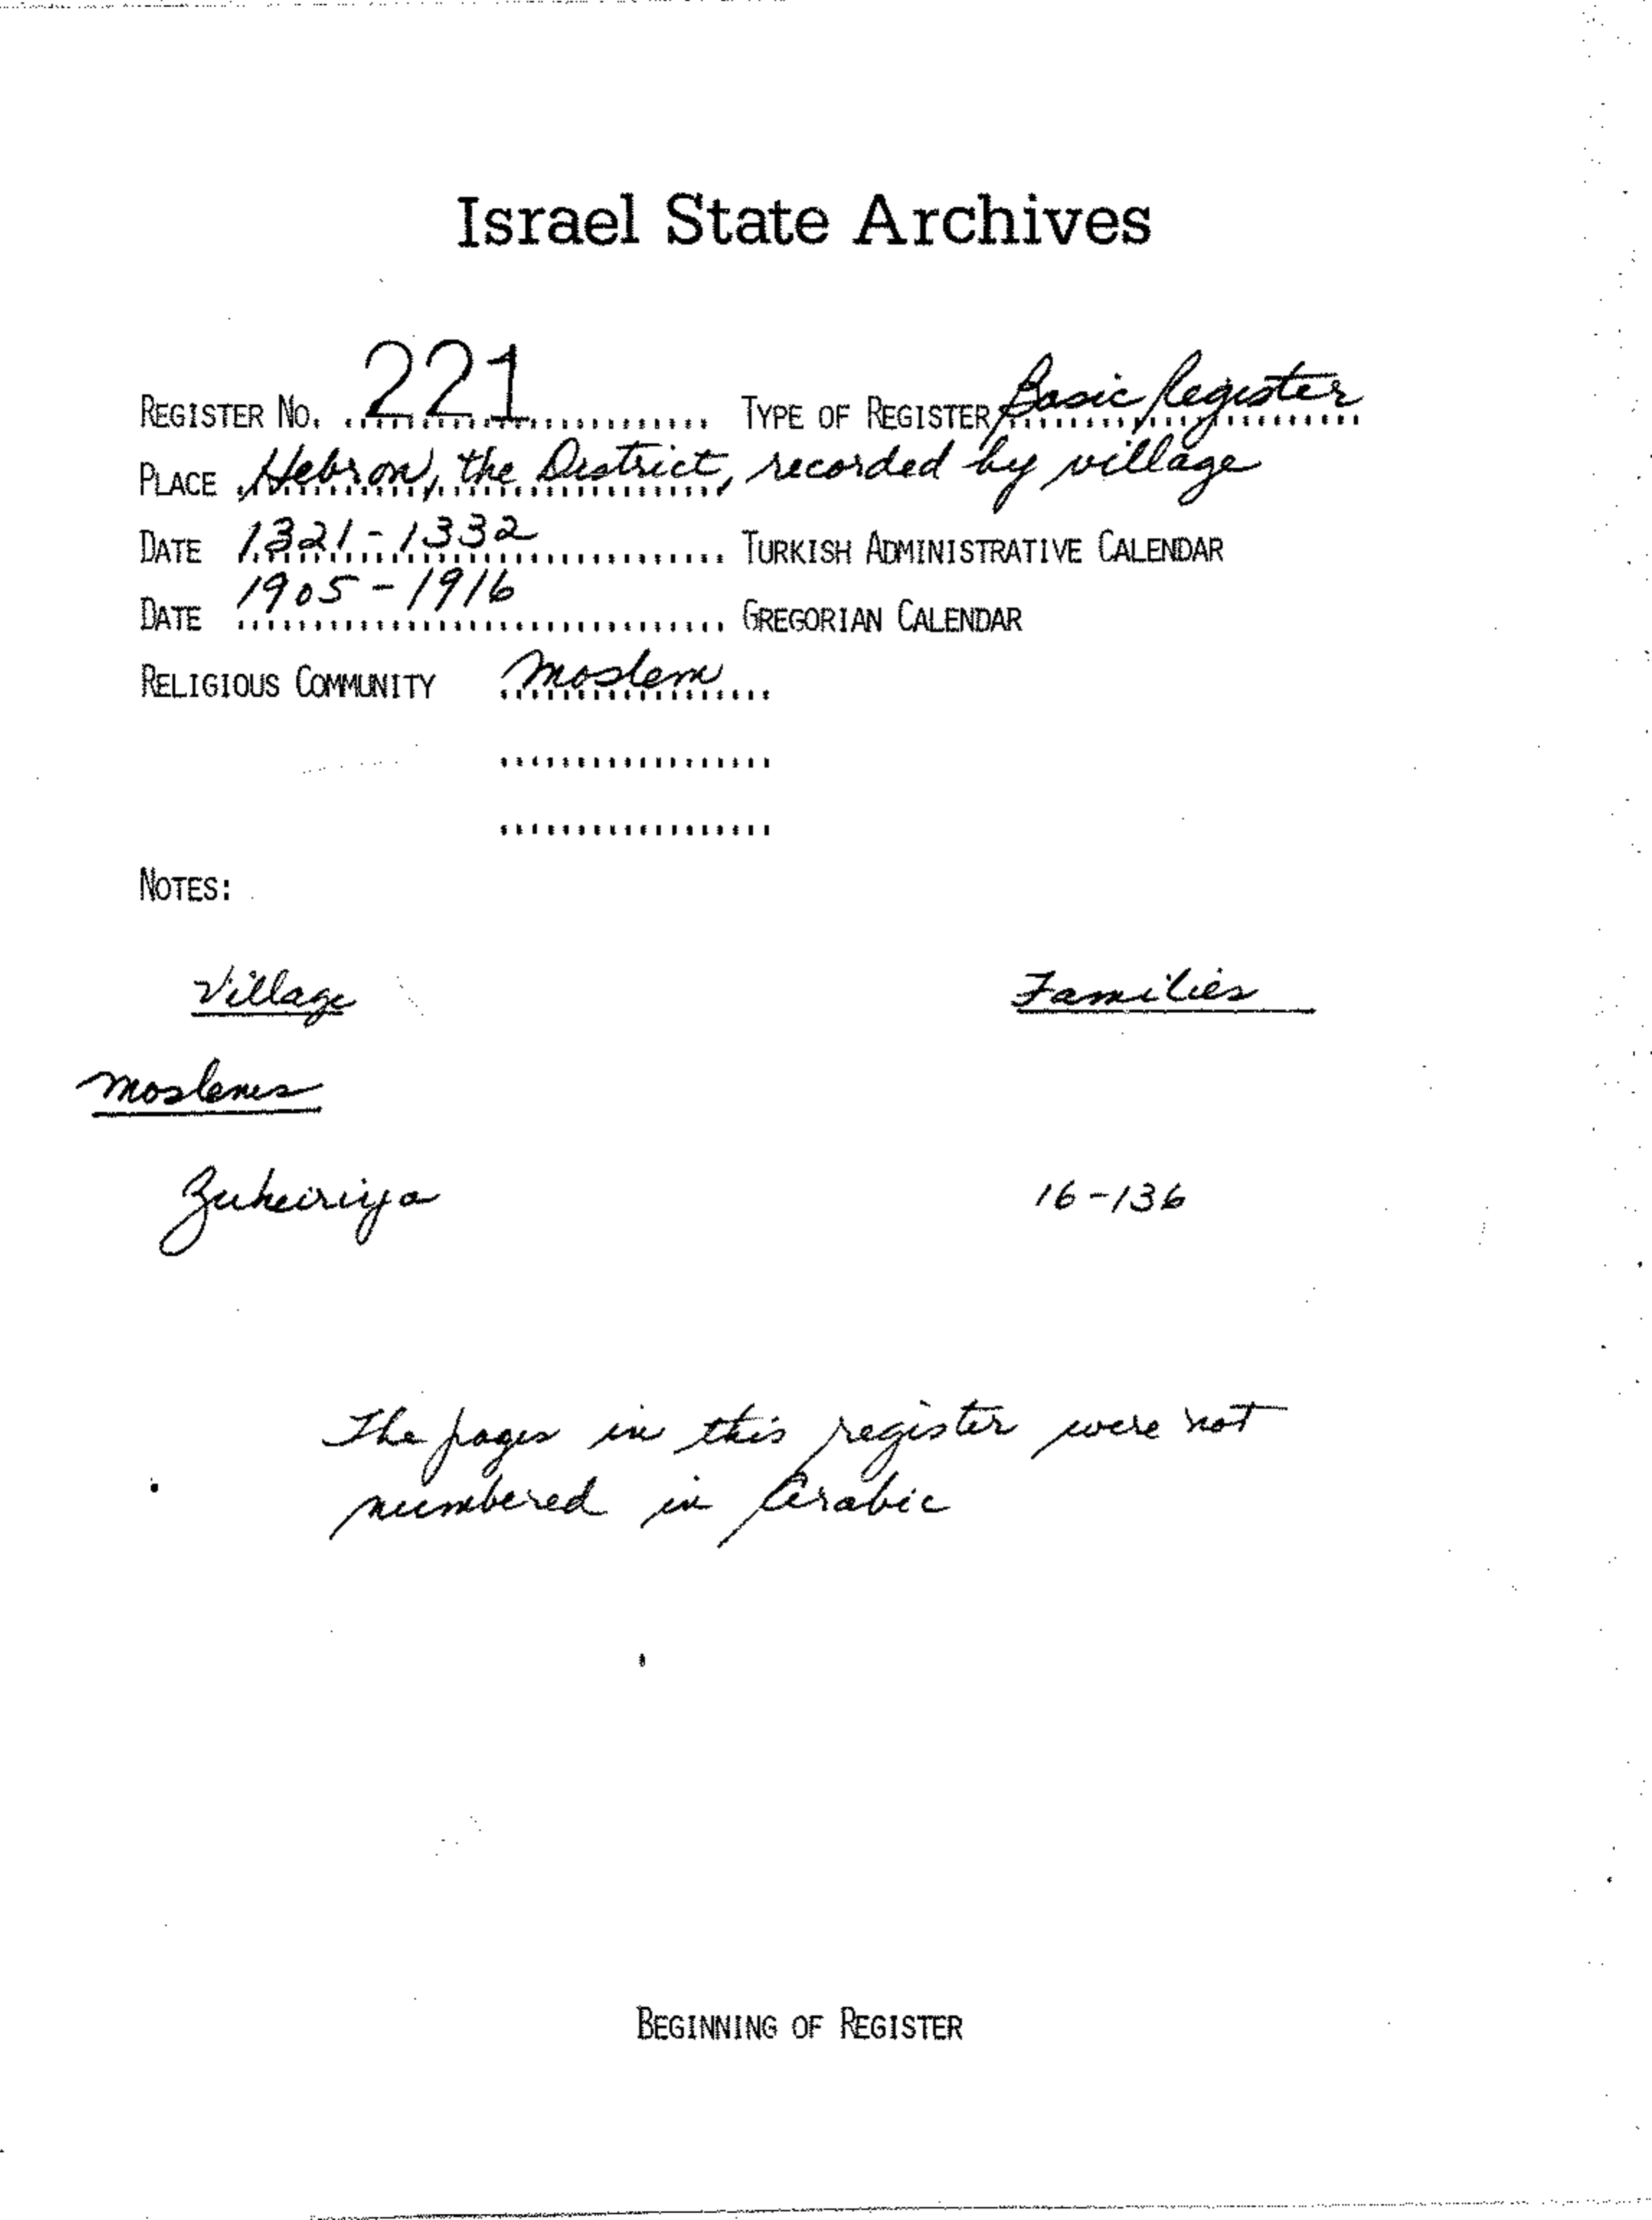 Israel State Archives
REGISTER NO. 221 TYPE OF REGISTER Basic Register
PLACE Hebron, the District, recorded by village
DATE 1321-1332 TURKISH ADMINISTRATIVE CALENDAR
DATE 1905-1916 GREGORIAN CALENDAR
RELIGIOUS COMMUNITY Moslem
NOTES:
Village Families
Moslems
Zuheiriya 16-136
The pages in this register were not
numbered in Arabic
BEGINNING OF REGISTER